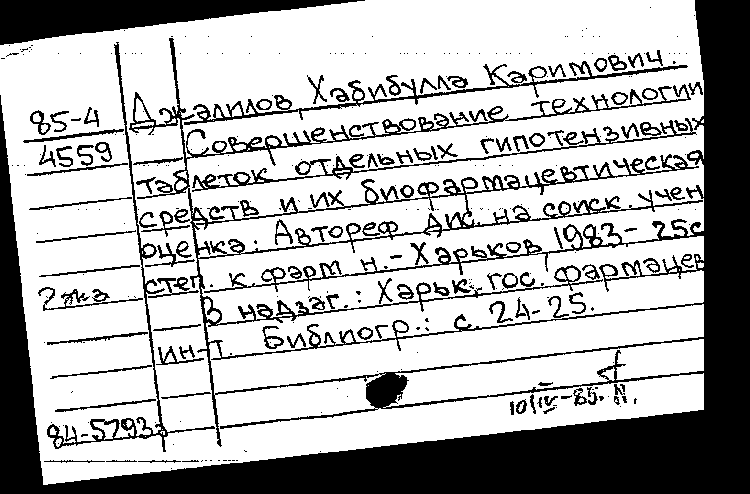 85-4
4559
Джалилов, Хабибулла Каримович.
Совершенствование технологии
таблеток отдельных гипотензивных
средств и их биофармацевтическая
оценка: Автореф. дис. на соиск. учен
степ. к. фарм н. - Харьков, 1983 - 25с
2 экз
В надзаг.: Харьк. гос. фармацев
ин-т. Библиогр.: с. 24-25.
84-5793а
10/IV-85. N.